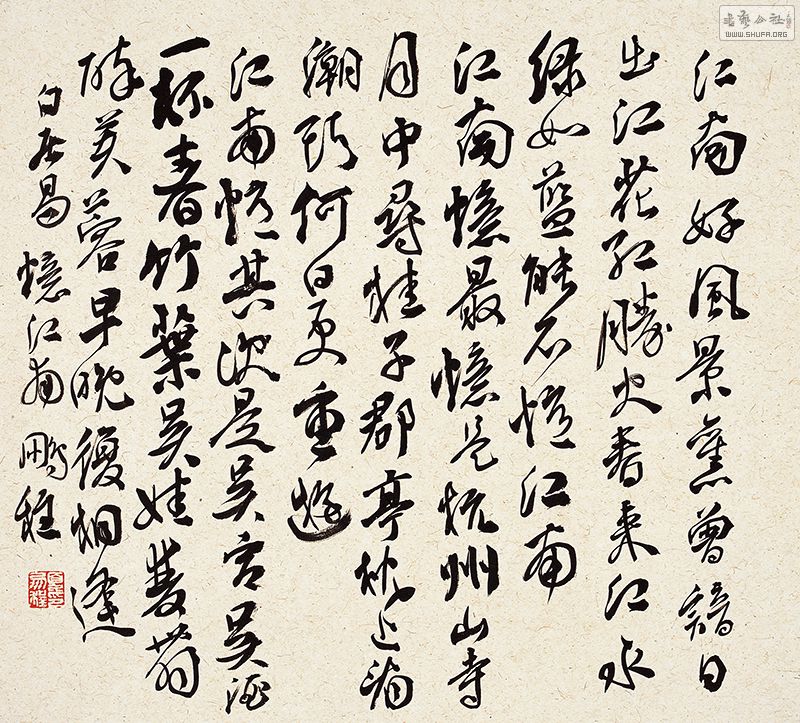 江南好風景舊曾諳日
出江花紅勝火春來江水
綠如藍能不憶江南
江南憶最憶是杭州山寺
月中尋桂子郡亭枕上看
潮頭何日更重遊
江南憶其次是吳宮吳酒
一杯春竹葉吳娃雙舞
醉芙蓉早晚復相逢
白居易憶江南 鵬程
書藝公社
WWW.SHUFA.ORG